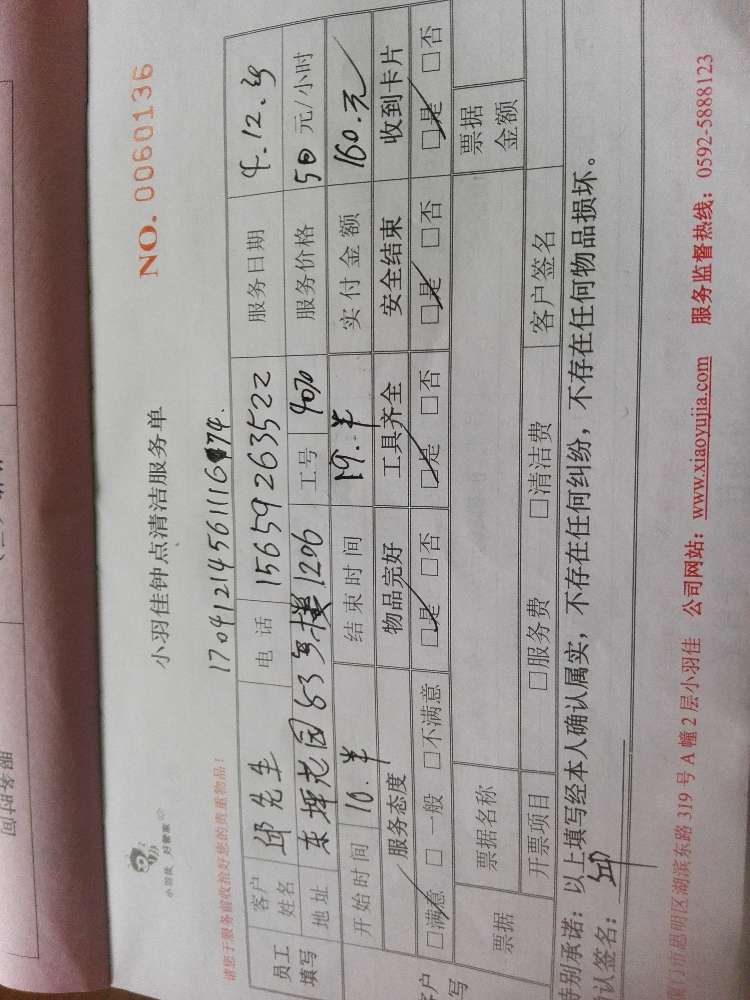 NO. 0060136
小羽佳钟点清洁服务单
小羽佳 好管家
请您于服务前收拾好您的贵重物品！
员工填写
客户姓名 邱先生 电话 15659263522 服务日期 4.12.
地址 东坪花园53号楼1206 工号 4070 服务价格 50 元/小时
开始时间 10.半 结束时间 19.半 实付金额 160.元
服务态度 物品完好 工具齐全 安全结束 收到卡片
□满意 □一般 □不满意 □是 □否 □是 □否 □是 □否 □是 □否
票据 票据名称 票据金额
开票项目 □服务费 □清洁费 客户签名
特别承诺：以上填写经本人确认属实，不存在任何纠纷，不存在任何物品损坏。
认签名： 邱
门市思明区湖滨东路 319 号 A 幢 2 层小羽佳 公司网站：www.xiaoyujia.com 服务监督热线：0592-5888123